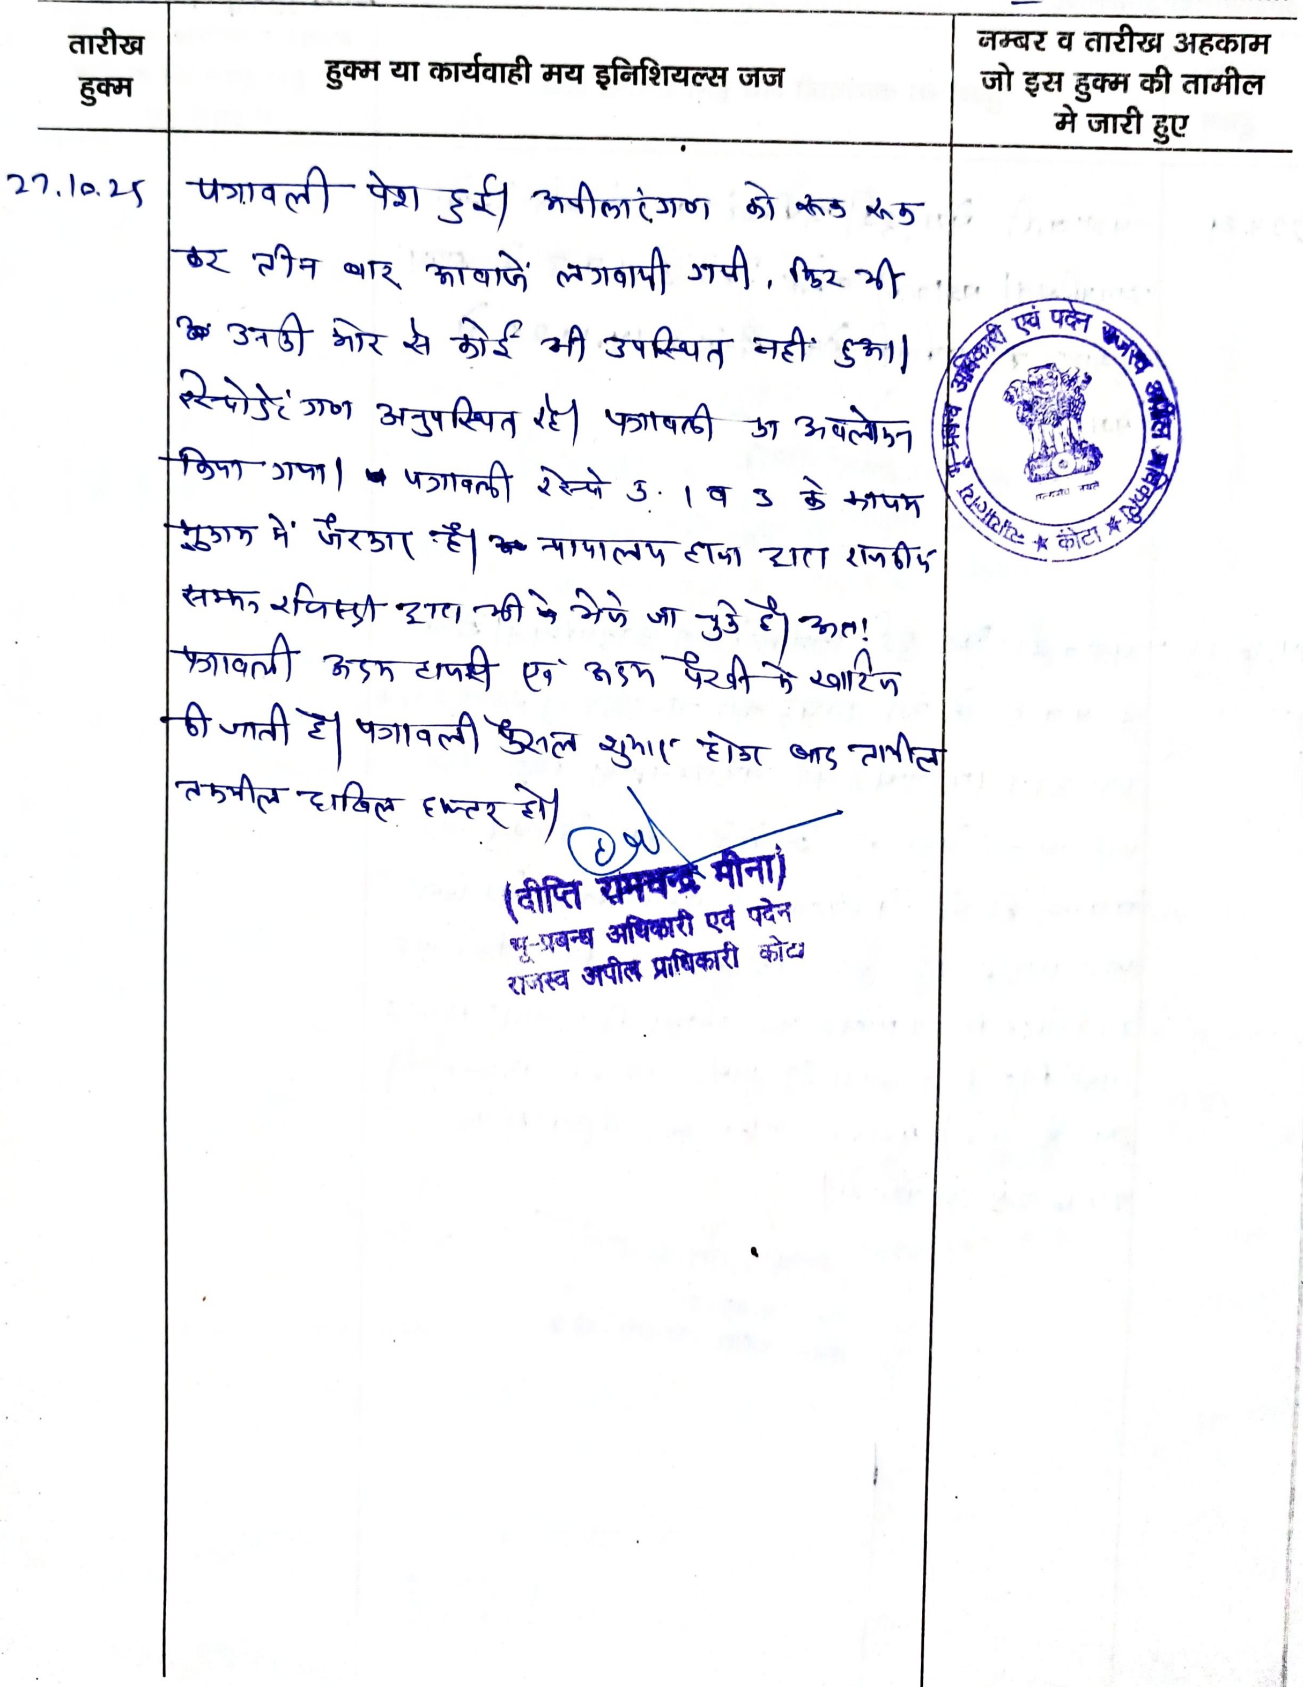 तारीख
हुक्म
हुक्म या कार्यवाही मय इनिशियल्स जज
नम्बर व तारीख अहकाम
जो इस हुक्म की तामील
मे जारी हुए
27.10.25
पत्रावली पेश हुई। अपीलांटगण को रूक रूक
कर तीन बार आवाजें लगवायी गयी, फिर भी
उनकी ओर से कोई भी उपस्थित नहीं हुआ।
रेस्पोडेंटगण अनुपस्थित रहे। पत्रावली का अवलोकन
किया गया। पत्रावली रेस्पो 1 व 3 के
में है। न्यायालय हाजा द्वारा राजकीय
सम्मन रजिस्ट्री द्वारा भी भेजे जा चुके है। अतः
पत्रावली अदम हाजरी एवं अदम पैरवी मे खारिज
की जाती है। पत्रावली फैसल शुमार होकर बाद तामील
तकमील दाखिल दफ्तर हो।
(दीप्ति रामचन्द्र मीना)
भू-प्रबन्ध अधिकारी एवं पदेन
राजस्व अपील प्राधिकारी कोटा
न्यायालय भू-प्रबन्ध अधिकारी एवं पदेन राजस्व अपील अधिकारी ★ कोटा ★